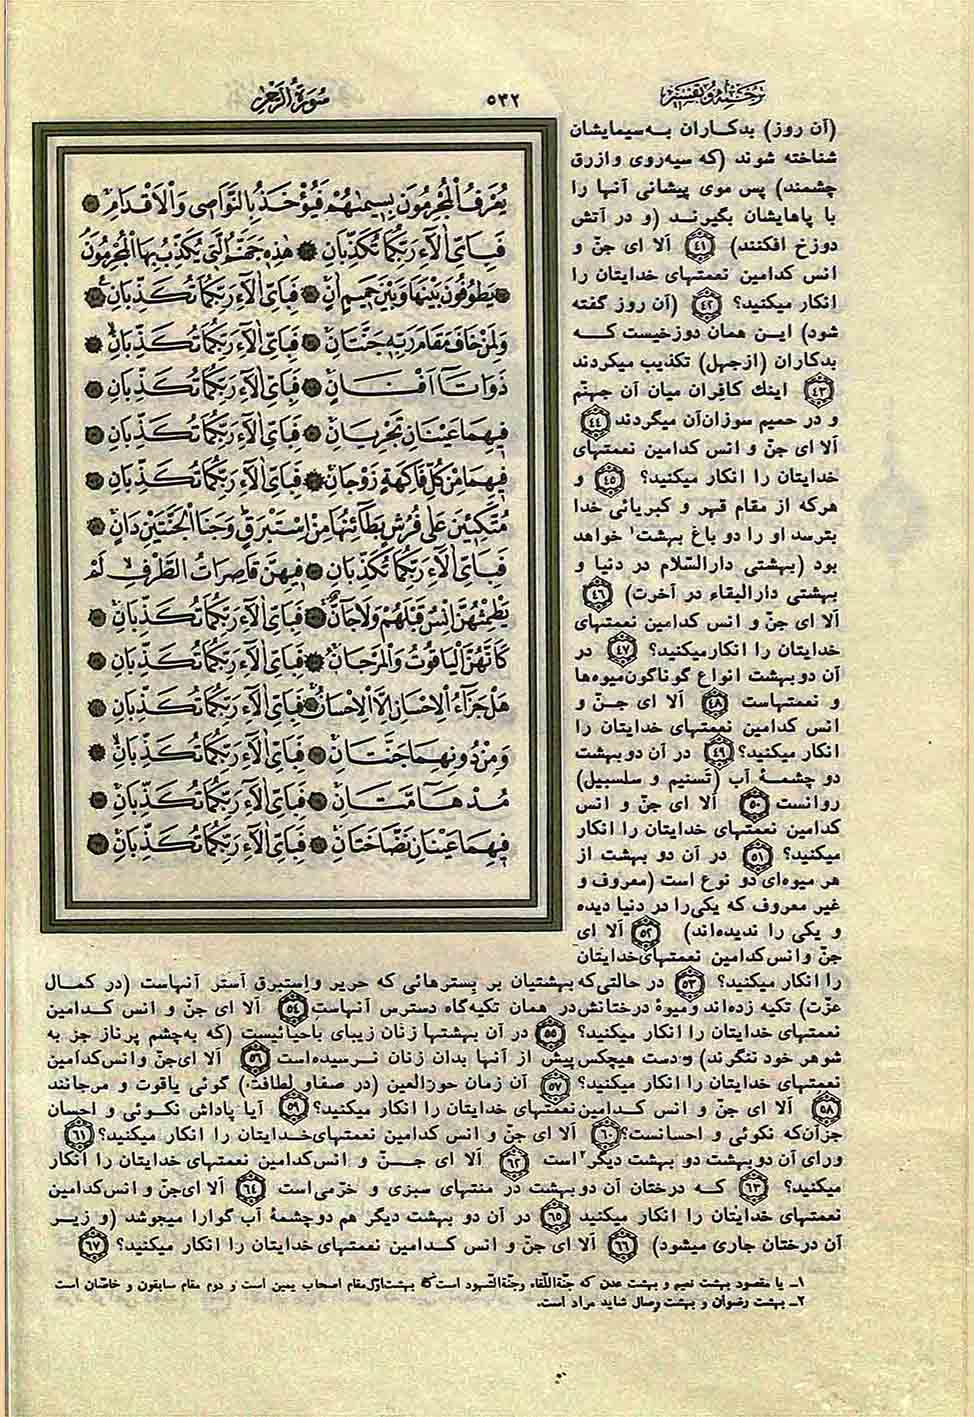 ترجمه و تفسیر
۵۳۲
سورة الرحمن
يُعْرَفُ الْمُجْرِمُونَ بِسِيمٰهُمْ فَيُؤْخَذُ بِالنَّوَاصِى وَالْاَقْدَامِ
فَبِاَىِّ اٰلَآءِ رَبِّكُمَا تُكَذِّبَانِ هٰذِهٖ جَهَنَّمُ الَّتِى يُكَذِّبُ بِهَا الْمُجْرِمُونَ
يَطُوفُونَ بَيْنَهَا وَبَيْنَ حَمِيمٍ اٰنٍ فَبِاَىِّ اٰلَآءِ رَبِّكُمَا تُكَذِّبَانِ
وَلِمَنْ خَافَ مَقَامَ رَبِّهٖ جَنَّتَانِ فَبِاَىِّ اٰلَآءِ رَبِّكُمَا تُكَذِّبَانِ
ذَوَاتَآ اَفْنَانٍ فَبِاَىِّ اٰلَآءِ رَبِّكُمَا تُكَذِّبَانِ
فِيهِمَا عَيْنَانِ تَجْرِيَانِ فَبِاَىِّ اٰلَآءِ رَبِّكُمَا تُكَذِّبَانِ
فِيهِمَا مِنْ كُلِّ فَاكِهَةٍ زَوْجَانِ فَبِاَىِّ اٰلَآءِ رَبِّكُمَا تُكَذِّبَانِ
مُتَّكِئِينَ عَلٰى فُرُشٍ بَطَآئِنُهَا مِنْ اِسْتَبْرَقٍ وَجَنَا الْجَنَّتَيْنِ دَانٍ
فَبِاَىِّ اٰلَآءِ رَبِّكُمَا تُكَذِّبَانِ فِيهِنَّ قَاصِرَاتُ الطَّرْفِ لَمْ
يَطْمِثْهُنَّ اِنْسٌ قَبْلَهُمْ وَلَا جَآنٌّ فَبِاَىِّ اٰلَآءِ رَبِّكُمَا تُكَذِّبَانِ
كَاَنَّهُنَّ الْيَاقُوتُ وَالْمَرْجَانُ فَبِاَىِّ اٰلَآءِ رَبِّكُمَا تُكَذِّبَانِ
هَلْ جَزَآءُ الْاِحْسَانِ اِلَّا الْاِحْسَانُ فَبِاَىِّ اٰلَآءِ رَبِّكُمَا تُكَذِّبَانِ
وَمِنْ دُونِهِمَا جَنَّتَانِ فَبِاَىِّ اٰلَآءِ رَبِّكُمَا تُكَذِّبَانِ
مُدْهَآمَّتَانِ فَبِاَىِّ اٰلَآءِ رَبِّكُمَا تُكَذِّبَانِ
فِيهِمَا عَيْنَانِ نَضَّاخَتَانِ فَبِاَىِّ اٰلَآءِ رَبِّكُمَا تُكَذِّبَانِ
(آن روز) بدکاران به‌سیمایشان
شناخته شوند (که سیه‌روی و ازرق
چشمند) پس موی پیشانی آنها را
با پاهایشان بگیرند (و در آتش
دوزخ افکنند) ۴۱ اَلا ای جنّ و
انس کدامین نعمتهای خدایتان را
انکار میکنید؟ ۴۲ (آن روز گفته
شود) این همان دوزخیست که
بدکاران (ازجهل) تکذیب میکردند
۴۳ اینك کافران میان آن جهنّم
و در حمیم سوزان‌آن میگردند ۴۴
اَلا ای جنّ و انس کدامین نعمتهای
خدایتان را انکار میکنید؟ ۴۵ و
هرکه از مقام قهر و کبریائی خدا
بترسد او را دو باغ بهشت۱ خواهد
بود (بهشتی دارالسّلام در دنیا و
بهشتی دارالبقاء در آخرت) ۴۶
اَلا ای جنّ و انس کدامین نعمتهای
خدایتان را انکارمیکنید؟ ۴۷ در
آن دوبهشت انواع گوناگون‌میوه‌ها
و نعمتهاست ۴۸ اَلا ای جنّ و
انس کدامین نعمتهای خدایتان را
انکار میکنید؟ ۴۹ در آن دوبهشت
دو چشمهٔ آب (تسنیم و سلسبیل)
روانست ۵۰ اَلا ای جنّ و انس
کدامین نعمتهای خدایتان را انکار
میکنید؟ ۵۱ در آن دو بهشت از
هر میوه‌ای دو نوع است (معروف و
غیر معروف که یکی‌را در دنیا دیده
و یکی را ندیده‌اند) ۵۲ اَلا ای
جنّ و انس‌کدامین نعمتهای‌خدایتان
را انکار میکنید؟ ۵۳ در حالتی‌که‌بهشتیان بر بسترهائی که حریر واستبرق آستر آنهاست (در کمال
عزّت) تکیه زده‌اند ومیوهٔ درختانش‌در همان تکیه‌گاه دسترس آنهاست ۵۴ اَلا ای جنّ و انس کدامین
نعمتهای خدایتان را انکار میکنید؟ ۵۵ در آن بهشتها زنان زیبای باحیائیست (که به‌چشم پرناز جز به
شوهر خود ننگرند) و دست هیچکس پیش از آنها بدان زنان نرسیده‌است ۵۶ اَلا ای‌جنّ وانس‌کدامین
نعمتهای خدایتان را انکار میکنید؟ ۵۷ آن زنان حورالعین (در صفاو لطافت) گوئی یاقوت و مرجانند
۵۸ اَلا ای جنّ و انس کدامین‌نعمتهای خدایتان را انکار میکنید؟ ۵۹ آیا پاداش نکوئی و احسان
جزآن‌که نکوئی و احسانست؟ ۶۰ اَلا ای جنّ و انس کدامین نعمتهای‌خدایتان را انکار میکنید؟ ۶۱
ورای آن دوبهشت دو بهشت دیگر۲ است ۶۲ اَلا ای جنّ و انس‌کدامین نعمتهای خدایتان را انکار
میکنید؟ ۶۳ که درختان آن دوبهشت در منتهای سبزی و خرّمی‌است ۶۴ اَلا ای‌جنّ و انس‌کدامین
نعمتهای خدایتان را انکار میکنید ۶۵ در آن دو بهشت دیگر هم دوچشمهٔ آب گوارا میجوشد (و زیر
آن درختان جاری میشود) ۶۶ اَلا ای جنّ و انس کدامین نعمتهای‌خدایتان را انکار میکنید؟ ۶۷
۱ـ یا مقصود بهشت نعیم و بهشت عدن که جنّة‌اللّقاء وجنّة‌الشّهود است که بهشت‌اوّل‌مقام اصحاب یمین است و دوم مقام سابقون و خاصّان است
۲ـ بهشت رضوان و بهشت وصال شاید مراد است.